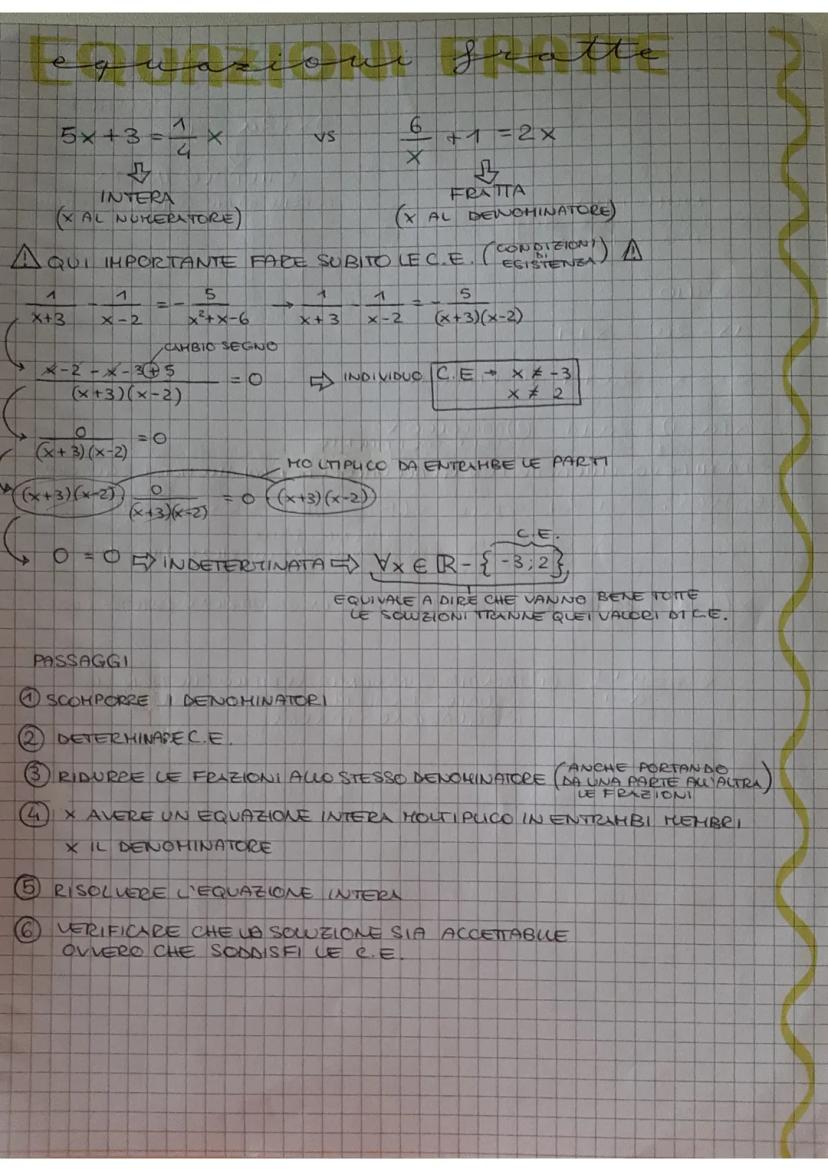 EQUAZIONI FRATTE
equazioni fratte
5x + 3 = 1/4 x vs 6/x + 1 = 2x
⇩ ⇩
INTERA FRATTA
(X AL NUMERATORE) (X AL DENOMINATORE)
⚠ QUI IMPORTANTE FARE SUBITO LE C.E. (CONDIZIONI DI ESISTENZA) ⚠
1/(x+3) - 1/(x-2) = - 5/(x²+x-6) → 1/(x+3) - 1/(x-2) = - 5/((x+3)(x-2))
CAMBIO SEGNO
(x-2-x-3+5)/((x+3)(x-2)) = 0 ⇨ INDIVIDUO C.E → x ≠ -3
x ≠ 2
0/((x+3)(x-2)) = 0
MOLTIPLICO DA ENTRAMBE LE PARTI
(x+3)(x-2) 0/((x+3)(x-2)) = 0 (x+3)(x-2)
C.E.
0 = 0 ⇨ INDETERTINATA ⇨ ∀x ∈ ℝ - {-3; 2}
EQUIVALE A DIRE CHE VANNO BENE TUTTE
LE SOLUZIONI TRANNE QUEI VALORI DI C.E.
PASSAGGI
① SCOMPORRE I DENOMINATORI
② DETERMINARE C.E.
③ RIDURRE LE FRAZIONI ALLO STESSO DENOMINATORE (ANCHE PORTANDO DA UNA PARTE ALL'ALTRA LE FRAZIONI)
④ X AVERE UN EQUAZIONE INTERA MOLTIPLICO IN ENTRAMBI MEMBRI
X IL DENOMINATORE
⑤ RISOLVERE L'EQUAZIONE INTERA
⑥ VERIFICARE CHE LA SOLUZIONE SIA ACCETTABILE
OVVERO CHE SODDISFI LE C.E.